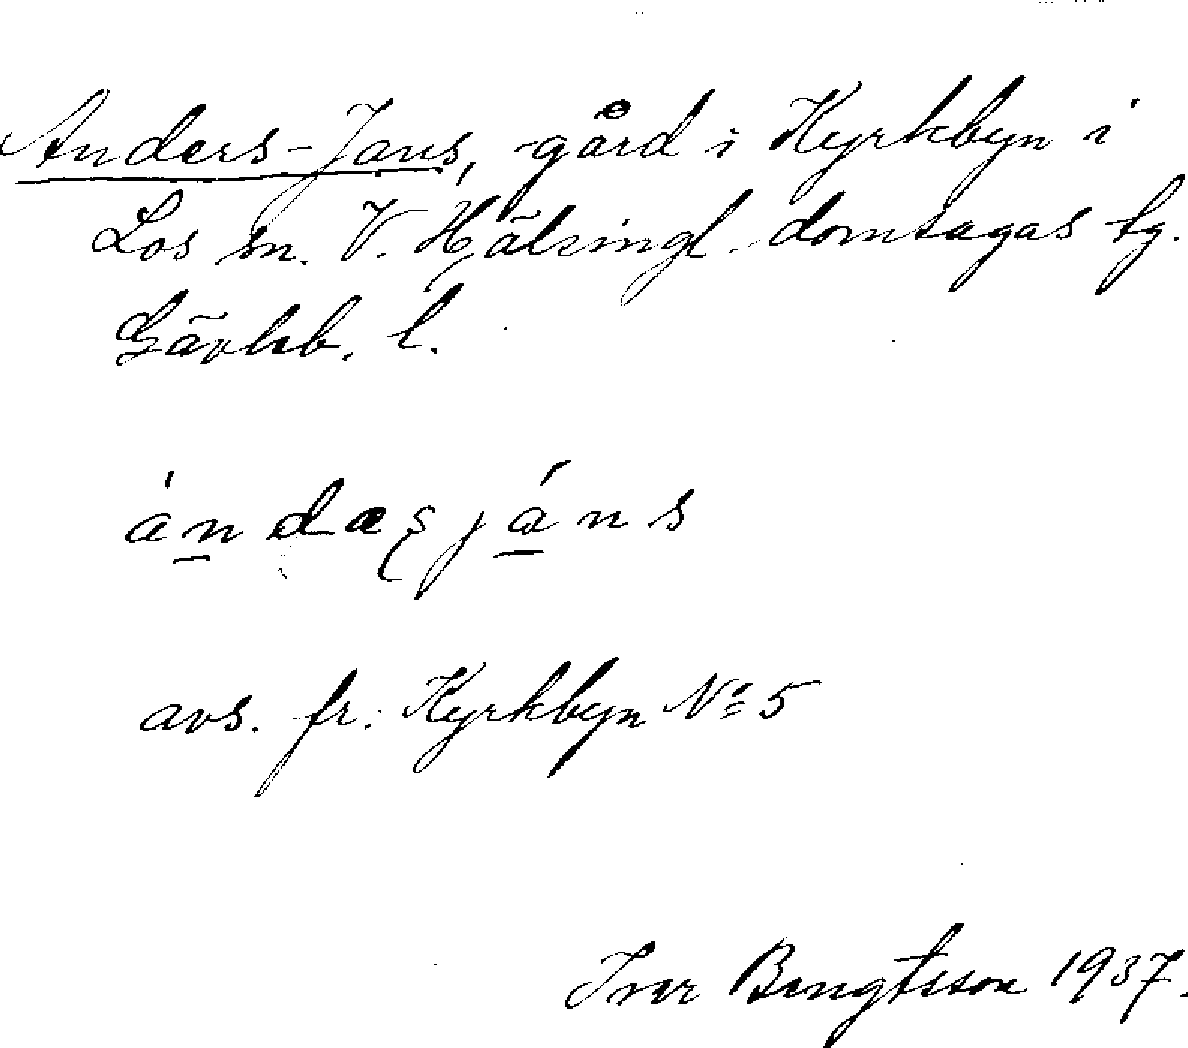 Anders-Jans, gård i Kyrkbyn i
Los sn. V. Hälsingl. domsagas tg.
Gävleb. l.
ándæsjáns
avs. fr. Kyrkbyn No 5
Ivar Bengtsson 1937.